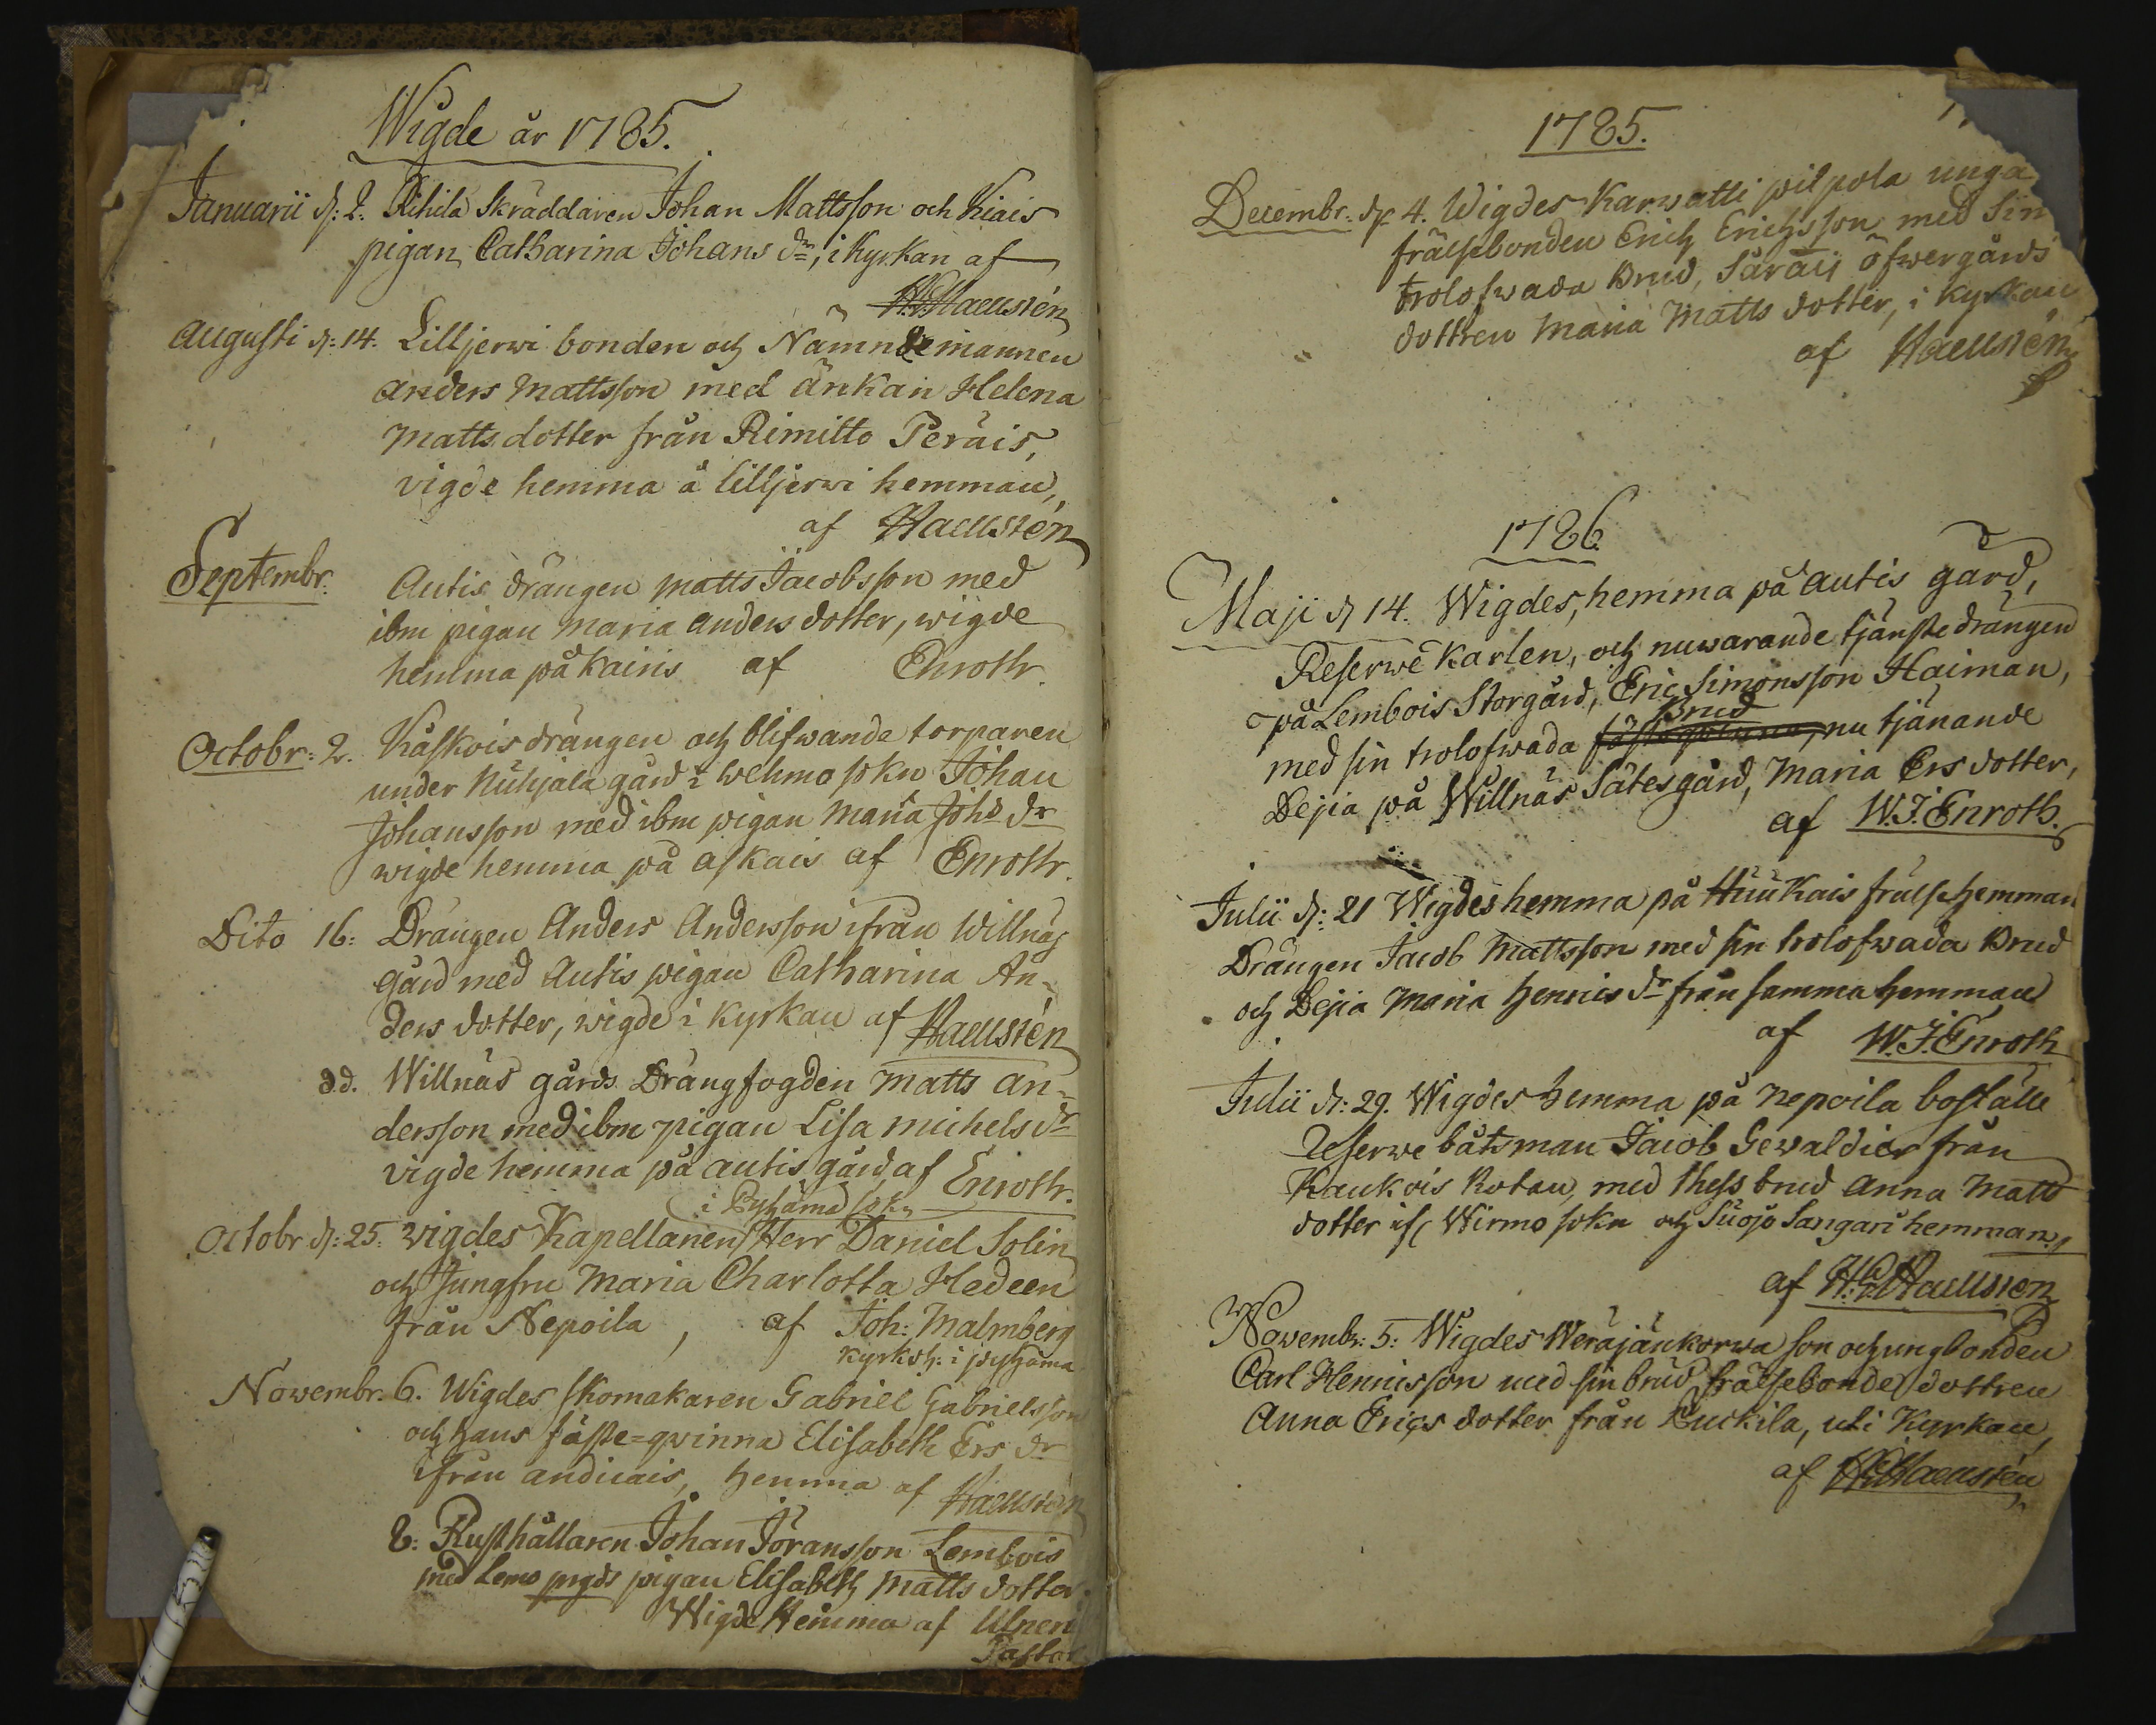 Wigde år 1785.
Januarii d: 2. Rihila Skräddaren Johan Mattsson och Kiais
pigan Catharina Johans dr, i Kyrkan af
Haellstén
Augusti d: 14. Lilljerwi bonden och Nämndemannen
Anders Mattsson med änkan Helena
Matts dotter från Rimitto Peräis,
vigde hemma å lilljerwi hemman,
af Haellstén
Septembr. Autis drängen Matts Jacobsson med
ibm pigan Maria Anders dotter, wigde
hemma på Kairis af Enroth.
Octobr: 2. Kåskois drängen och blifwande torparen
under Nuhjala gård i Wehmo sokn Johan
Johansson med ibm pigan Maria Johs dr
wigde hemma på Askais af Enroth.
Dito 16: Drängen Anders Andersson ifrån Willnäs
gård med Autis pigan Catharina An-
ders dotter, wigde i Kyrkan af Haellstén
dd. Willnäs gårds Drängfogden Matts An-
dersson med ibm pigan Lisa Michels dr
vigde hemma på Autis gård af Enroth.
i Pyhämä sokn
Octobr d: 25. wigdes Kapellanen Herr Daniel Solin
och Jungfru Maria Charlotta Hedeen
från Nepoila, af Joh: Malmberg
Kyrkoh: i pyhäma
Novembr. 6. Wigdes skomakaren Gabriel Gabrielsson
och hans fäste=qvinna Elisabeth Ers dr
ifrån andicais, hemma af Haellstén
8: Rusthållaren Johan Jöransson Lembois
med Lemo prgds pigan Elisabeth Matts dotter.
Wigde Hemma af Ulnen
Pastor
1785.
Decembr. d: 4. Wigdes Karwatti pilpola unga
frälsebonden Erich Erichsson med Sin
trolofwada Brud, Särais öfwergårds
dottren Maria Matts dotter, i Kyrkan
af Haellstén
1786
Maji d 14. Wigdes, hemma på Autis gård,
Reserwe Karlen, och nuwarande tjänstedrängen
på Lembois Storgård, Eric Simonsson Haiman,
Brud
med sin trolofwada fästeqwinna, nu tjänande
Dejia på Willnäs Sätesgård, Maria Ers dotter,
af W.J. Enroth.
Julii d: 21 Wigdes hemma på Huukais frälse hemman
Drängen Jacob Mattsson med sin trolofwada Brud
och Dejia Maria Henrics dr från samma hemman
af W.J. Enroth
Julii d: 29. Wigdes hemma på Nepoila boställe
Reserwe båtsman Jacob Gewaldier från
Kaukois Rotan, med thess brud Anna Matts
dotter if Wirmo sokn och Suojo Sangari hemman,
af Haellstén
Nowembr: 5: Wigdes Weräjänkorwa son och ungbonden
Carl Henricsson med sin brud, frälsebonde dottren
Anna Erics dotter från Ruckila, uti Kyrkan,
af Haellstén